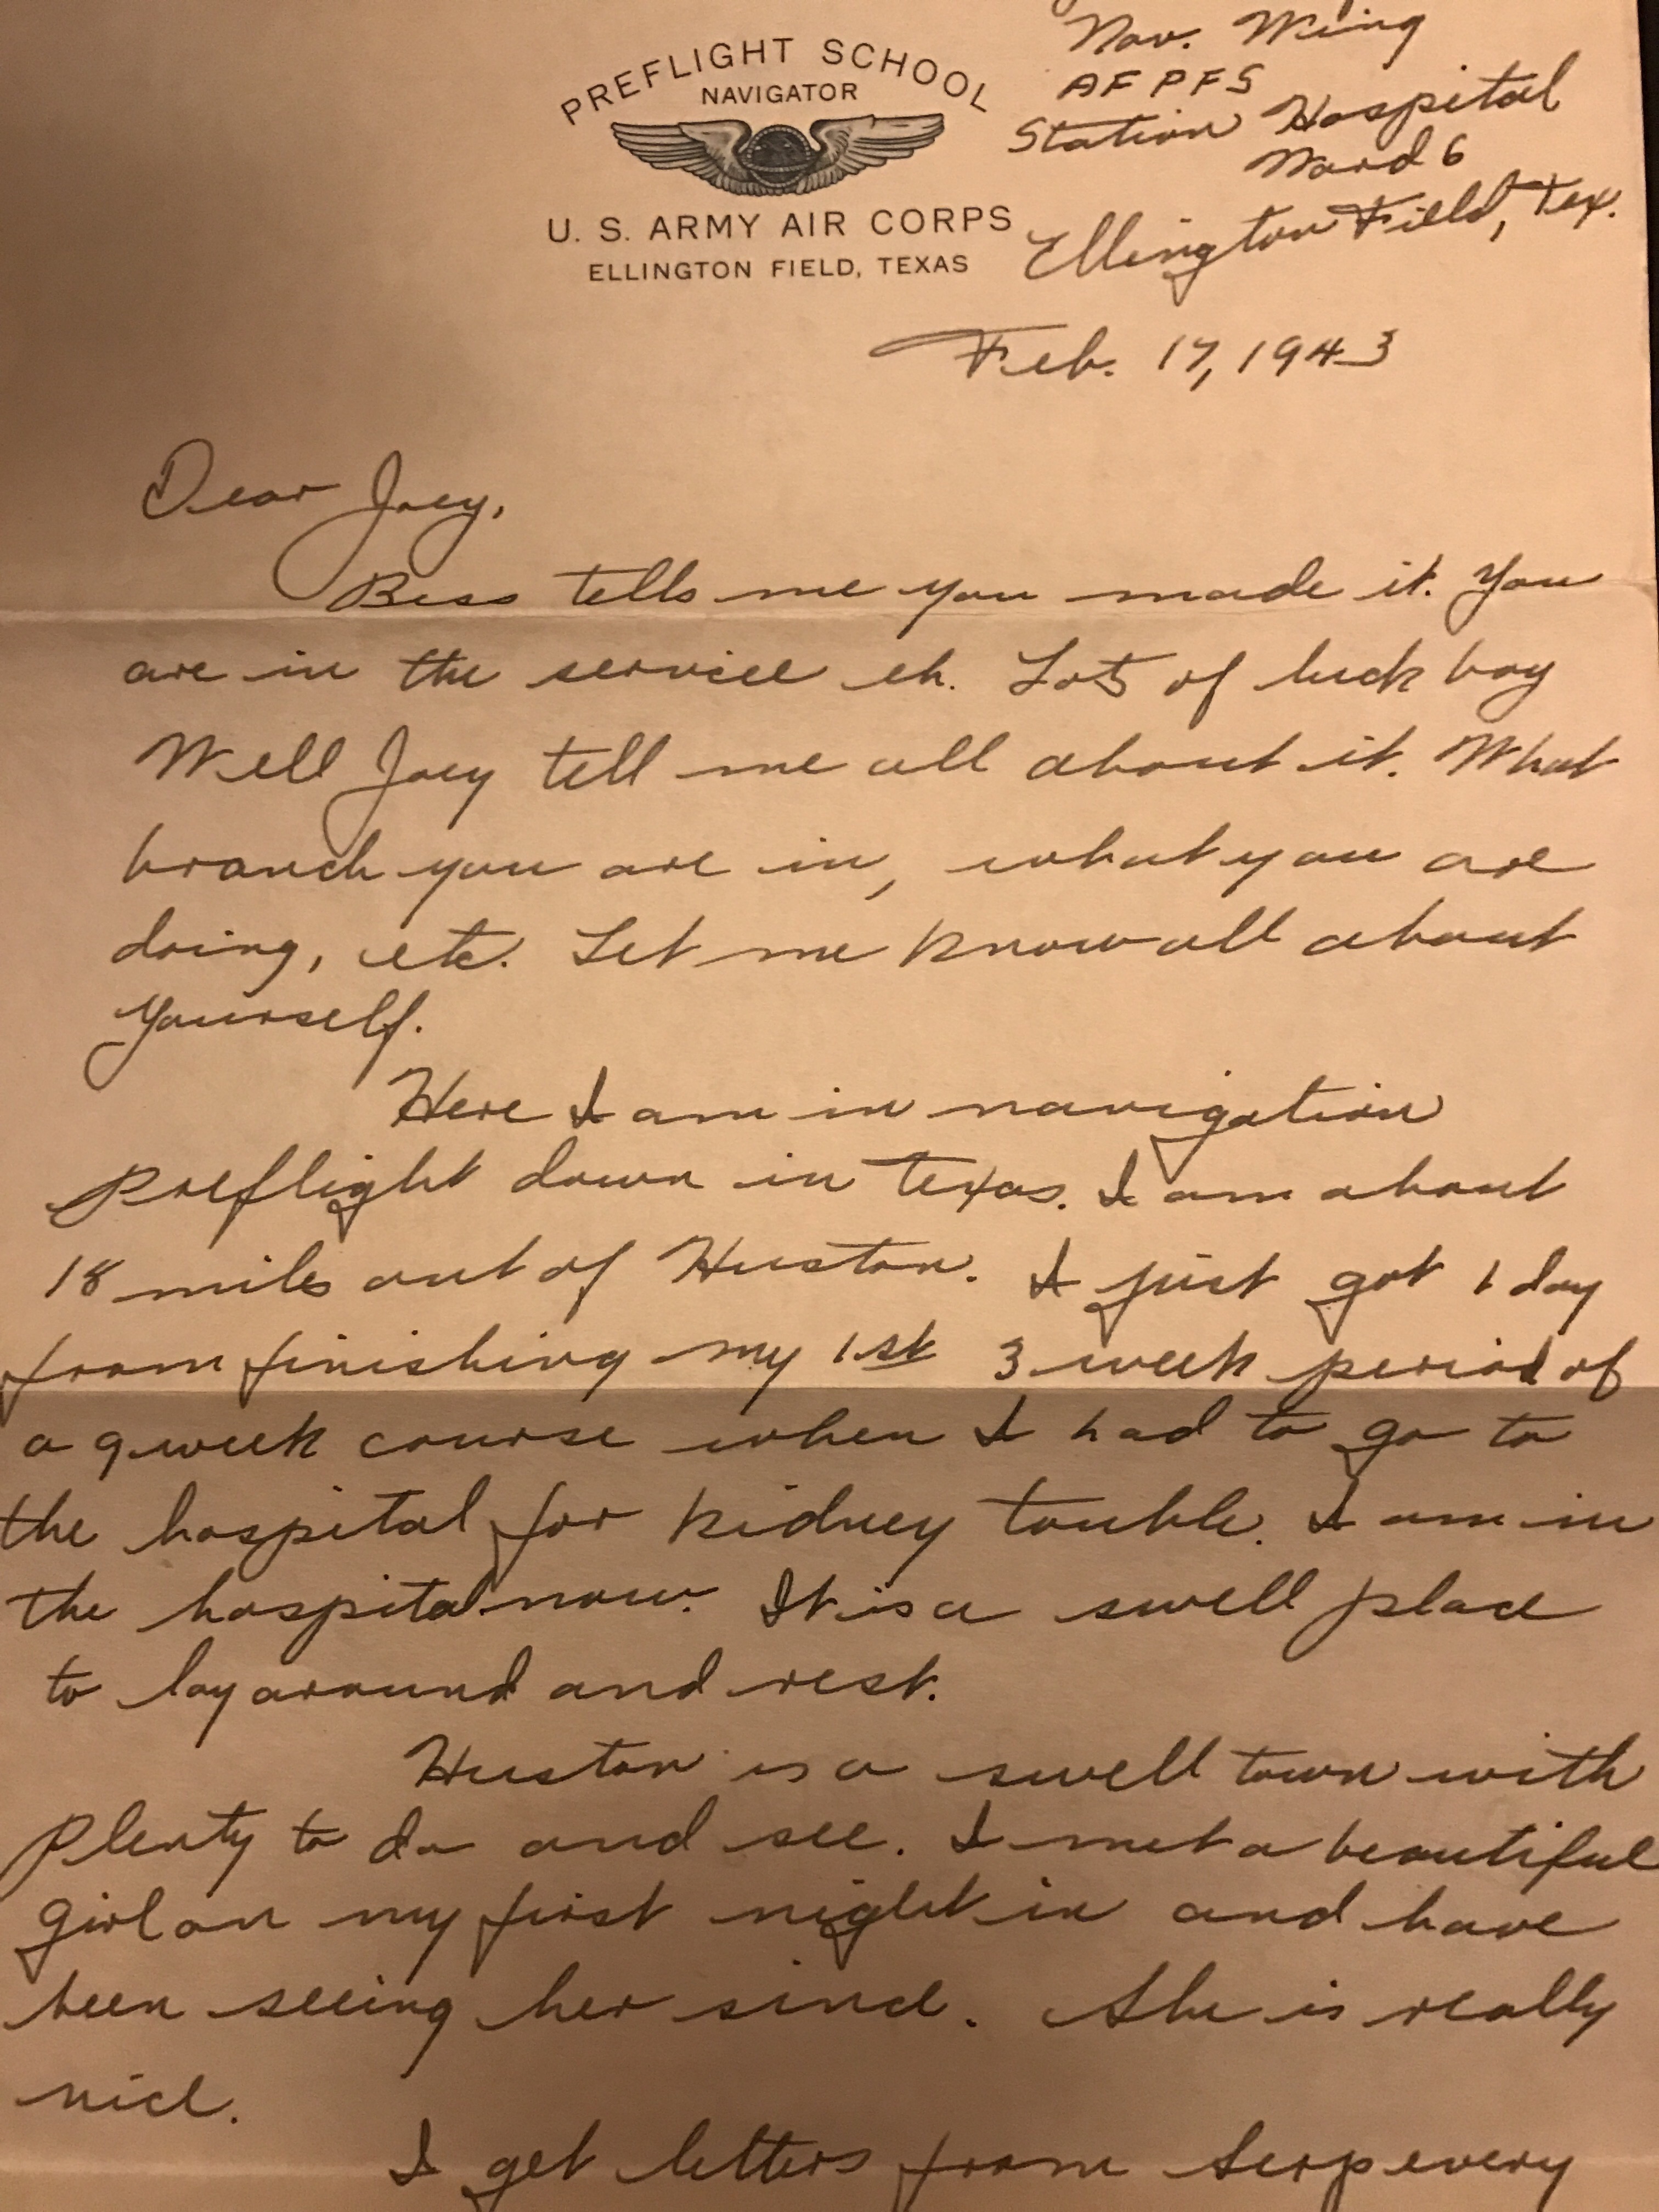 PREFLIGHT SCHOOL
NAVIGATOR
U. S. ARMY AIR CORPS
ELLINGTON FIELD, TEXAS
Nav. Wing
AFPFS
Station Hospital
Ward 6
Ellington Field, Tex.
Feb. 17, 1943
Dear Joey,
Bess tells me you made it. You
are in the service eh. Lots of luck boy
Well Joey tell me all about it. What
branch you are in, what you are
doing, etc. Let me know all about
yourself.
Here I am in navigation
Preflight down in Texas. I am about
18 miles out of Huston. I just got 1 day
from finishing my 1st 3 week period of
a 9 week course when I had to go to
the hospital for kidney touble. I am in
the hospital now. It is a swell place
to lay around and rest.
Huston is a swell town with
Plenty to do and see. I met a beautiful
girl on my first night in and have
been seeing her since. She is really
nice.
I get letters from Serp every